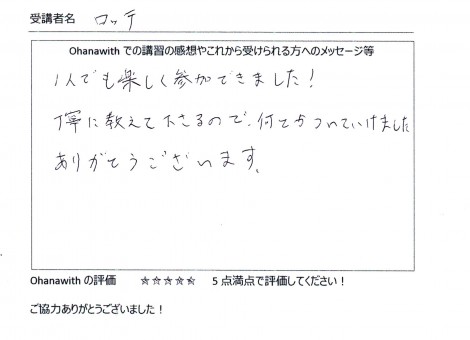 受講者名 ロッテ
Ohanawith での講習の感想やこれから受けられる方へのメッセージ等
1人でも楽しく参加できました!
丁寧に教えて下さるので、何とかついていけました
ありがとうございます。
Ohanawith の評価 ☆☆☆☆☆ 5点満点で評価してください!
ご協力ありがとうございました!